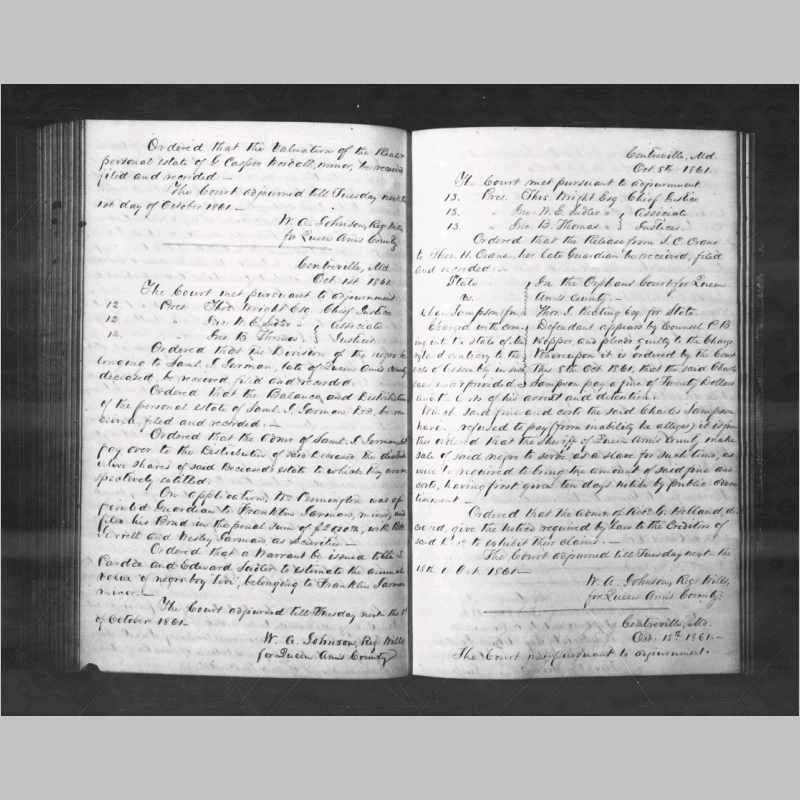 Ordered that the Valuation of the Real &
personal estate of G Casper Woodall, minor, be received
filed and recorded —
The Court adjourned till Tuesday next the
1st day of October 1861 —
W. A. Johnson, Reg Wills
for Queen Ann's County
Centreville, Md.
Oct 1st 1861
The Court met pursuant to adjournment
12 Pres Tho. Wright Esq Chief Justice
12 " Jno W. E. Sudler " Associate
12 " Jno B. Thomas " Justices
Ordered that the Division of the negroes
belonging to Saml. T. Jarman, late of Queen Ann's County
deceased, be received filed and recorded.
Ordered that the Balance and Distribution
of the personal estate of Saml. T. Jarman Decd, be re-
ceived, filed and recorded. —
Ordered that the Admr of Saml. T. Jarman,
pay over to the Distributees of said Deceased the distrib-
utive shares of said Deceased's estate to which they are re-
spectively entitled.
On application, Wm Pennington was ap-
pointed Guardian to Franklin Jarman, minor, and
files his Bond in the penal sum of $ with
and Wesley Jarman as Securities —
Ordered that a Warrant be issued to
Pardee and Edward to estimate the annual
value of negro boy "Levi", belonging to Franklin Jarman
minor —
The Court adjourned till Tuesday next the 8th
of October 1861 —
W. A. Johnson, Reg Wills
for Queen Ann's County
Centreville, Md.
Oct 8th 1861
The Court met pursuant to adjournment
13. Pres. Tho. Wright Esq Chief Justice
13. " Jno. W. E. Sudler " Associate
13. " Jno. B. Thomas " Justices
Ordered that the Release from J. C. Crane
to Thos. H. Crane her late Guardian be received, filed
and recorded. —
State In the Orphans Court for Queen
vs. Ann's County. —
Chas Sampson (fn) Thos. J. Keating Esq. for State.
Charged with com- Defendant appears by Counsel P. B.
ing into the state of Hopper and pleads guilty to the Charge
contrary to the Whereupon it is ordered by the Court
Acts of Assembly in such this 8th Oct 1861, that the said Charles
case made & provided Sampson pay a fine of Twenty Dollars
and the costs of his arrest and detention.
Which said fine and costs the said Charles Sampson
having refused to pay (from inability he alleges) it is fur-
ther ordered that the Sheriff of Queen Ann's County make
sale of said negro to serve as a slave for such time, as
will be required to bring the amount of said fine and
costs, having first given ten days notice by public adver-
tisement. —
Ordered that the Admr of Robt G. Holland, de-
ceased, give the notice required by Law to the Creditors of
said to exhibit their claims. —
The Court adjourned till Tuesday next the
15th Oct 1861 —
W. A. Johnson, Reg Wills,
for Queen Ann's County.
Centreville, Md.
Oct. 15th 1861 —
The Court met pursuant to adjournment.